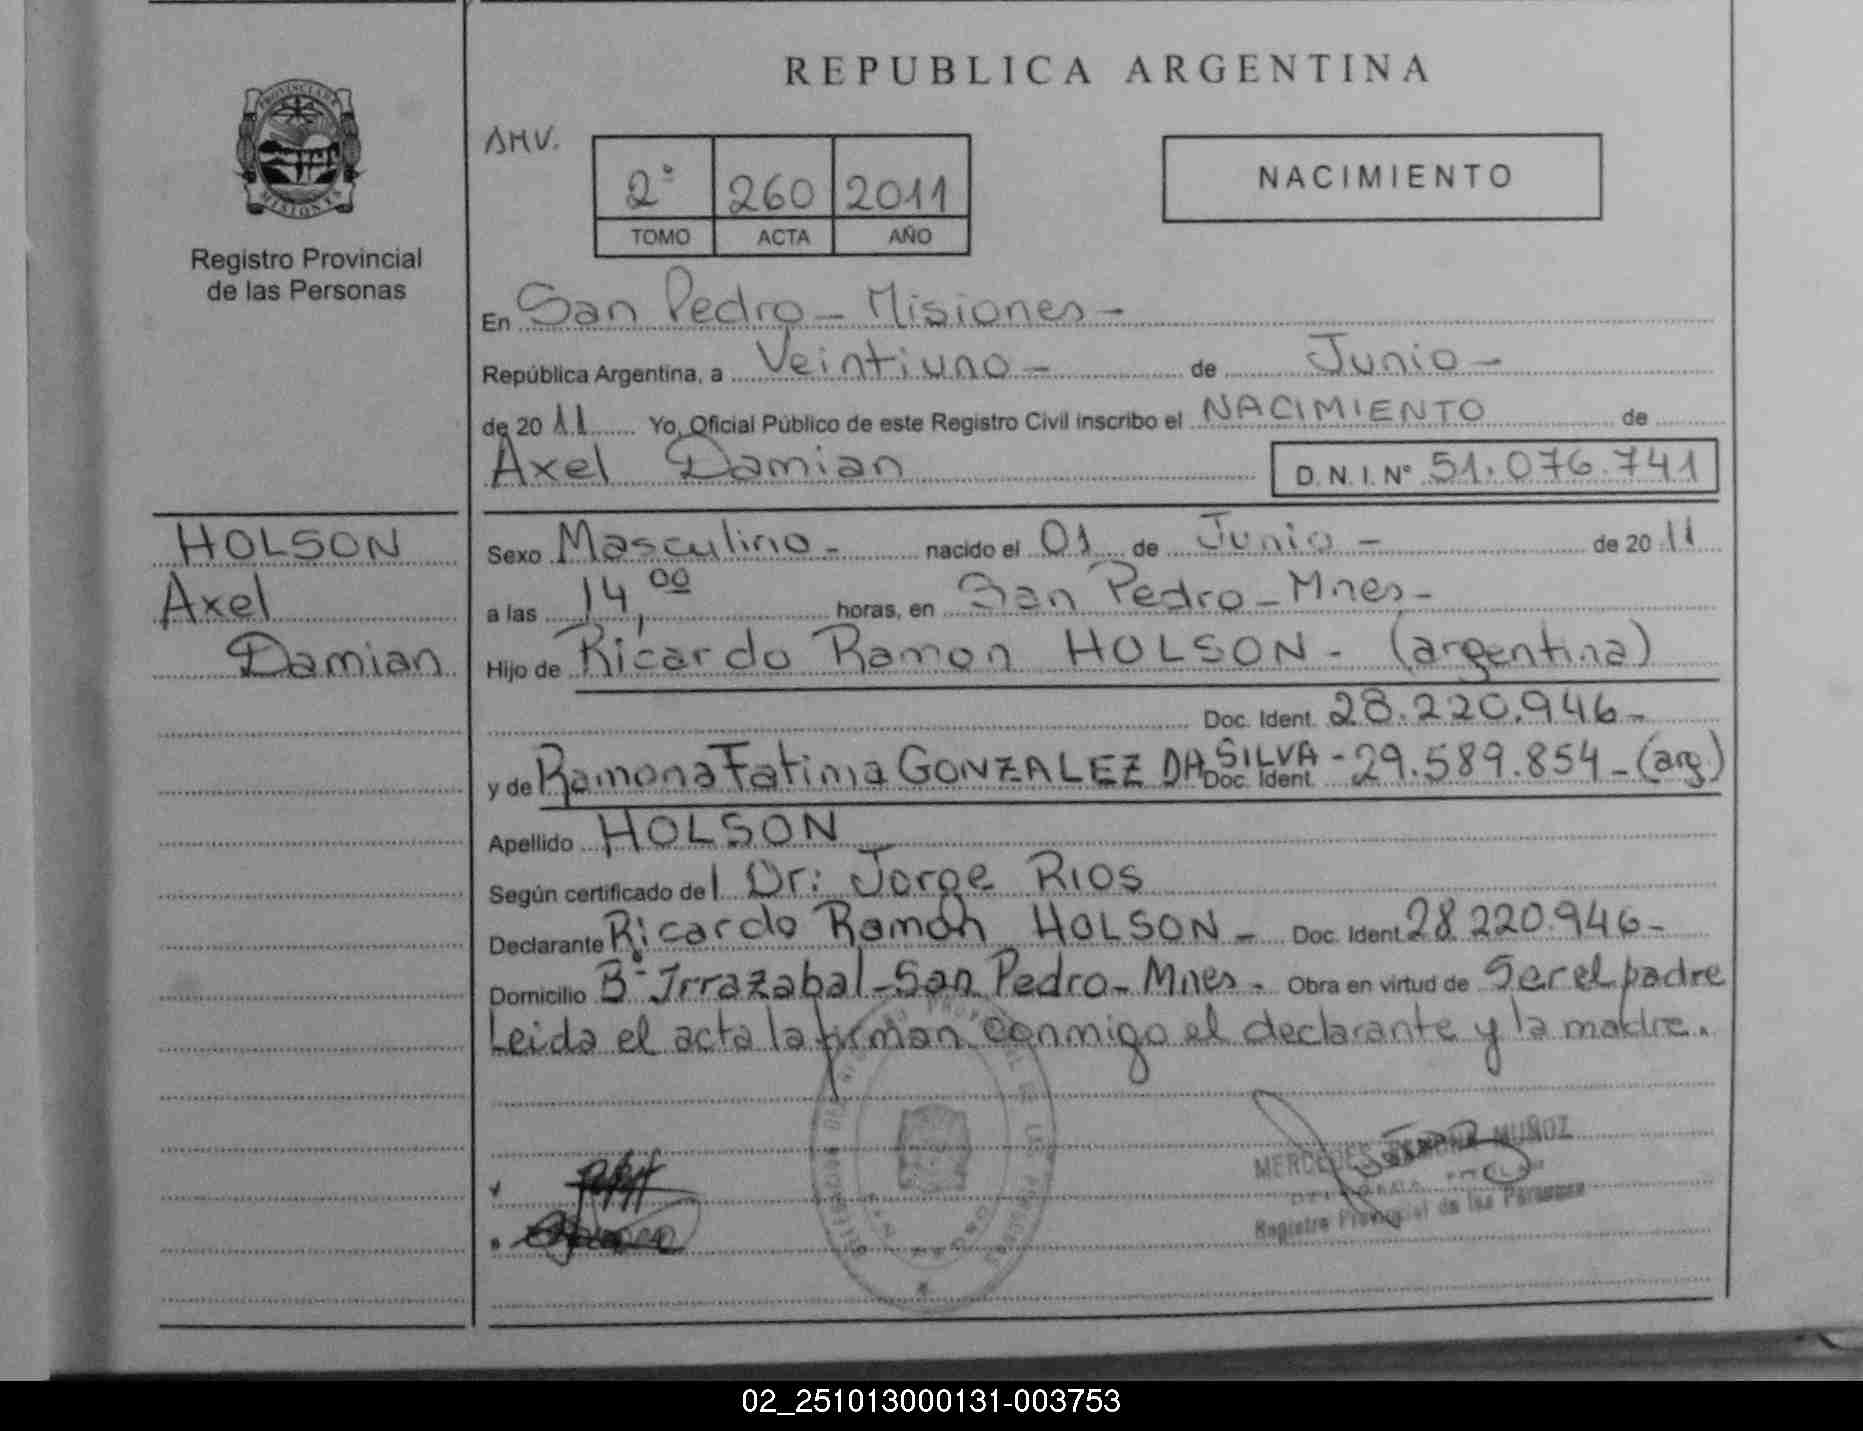 REPUBLICA ARGENTINA
PROVINCIA DE
MISIONES
Registro Provincial
de las Personas
AMV.
2° 260 2011
TOMO ACTA AÑO
NACIMIENTO
En San Pedro - Misiones -
República Argentina, a Veintiuno - de Junio -
de 20 11 Yo, Oficial Público de este Registro Civil inscribo el NACIMIENTO de
Axel Damian D.N.I.N° 51.076.741
HOLSON
Axel
Damian
Sexo Masculino - nacido el 01 de Junio - de 20 11
a las 14,00 horas, en San Pedro - Mnes -
Hijo de Ricardo Ramon HOLSON - (argentina)
Doc. Ident. 28.220.946 -
y de Ramona Fatima GONZALEZ DA SILVA - Doc. Ident. 29.589.854 - (arg)
Apellido HOLSON
Según certificado del Dr: Jorge RIOS
Declarante Ricardo Ramón HOLSON - Doc. Ident. 28.220.946 -
Domicilio B° Irrazabal - San Pedro - Mnes - Obra en virtud de Ser el padre
Leida el acta la firman conmigo el declarante y la madre.
MERCEDES RAMONA MUÑOZ
Registro Provincial de las Personas
02_251013000131-003753